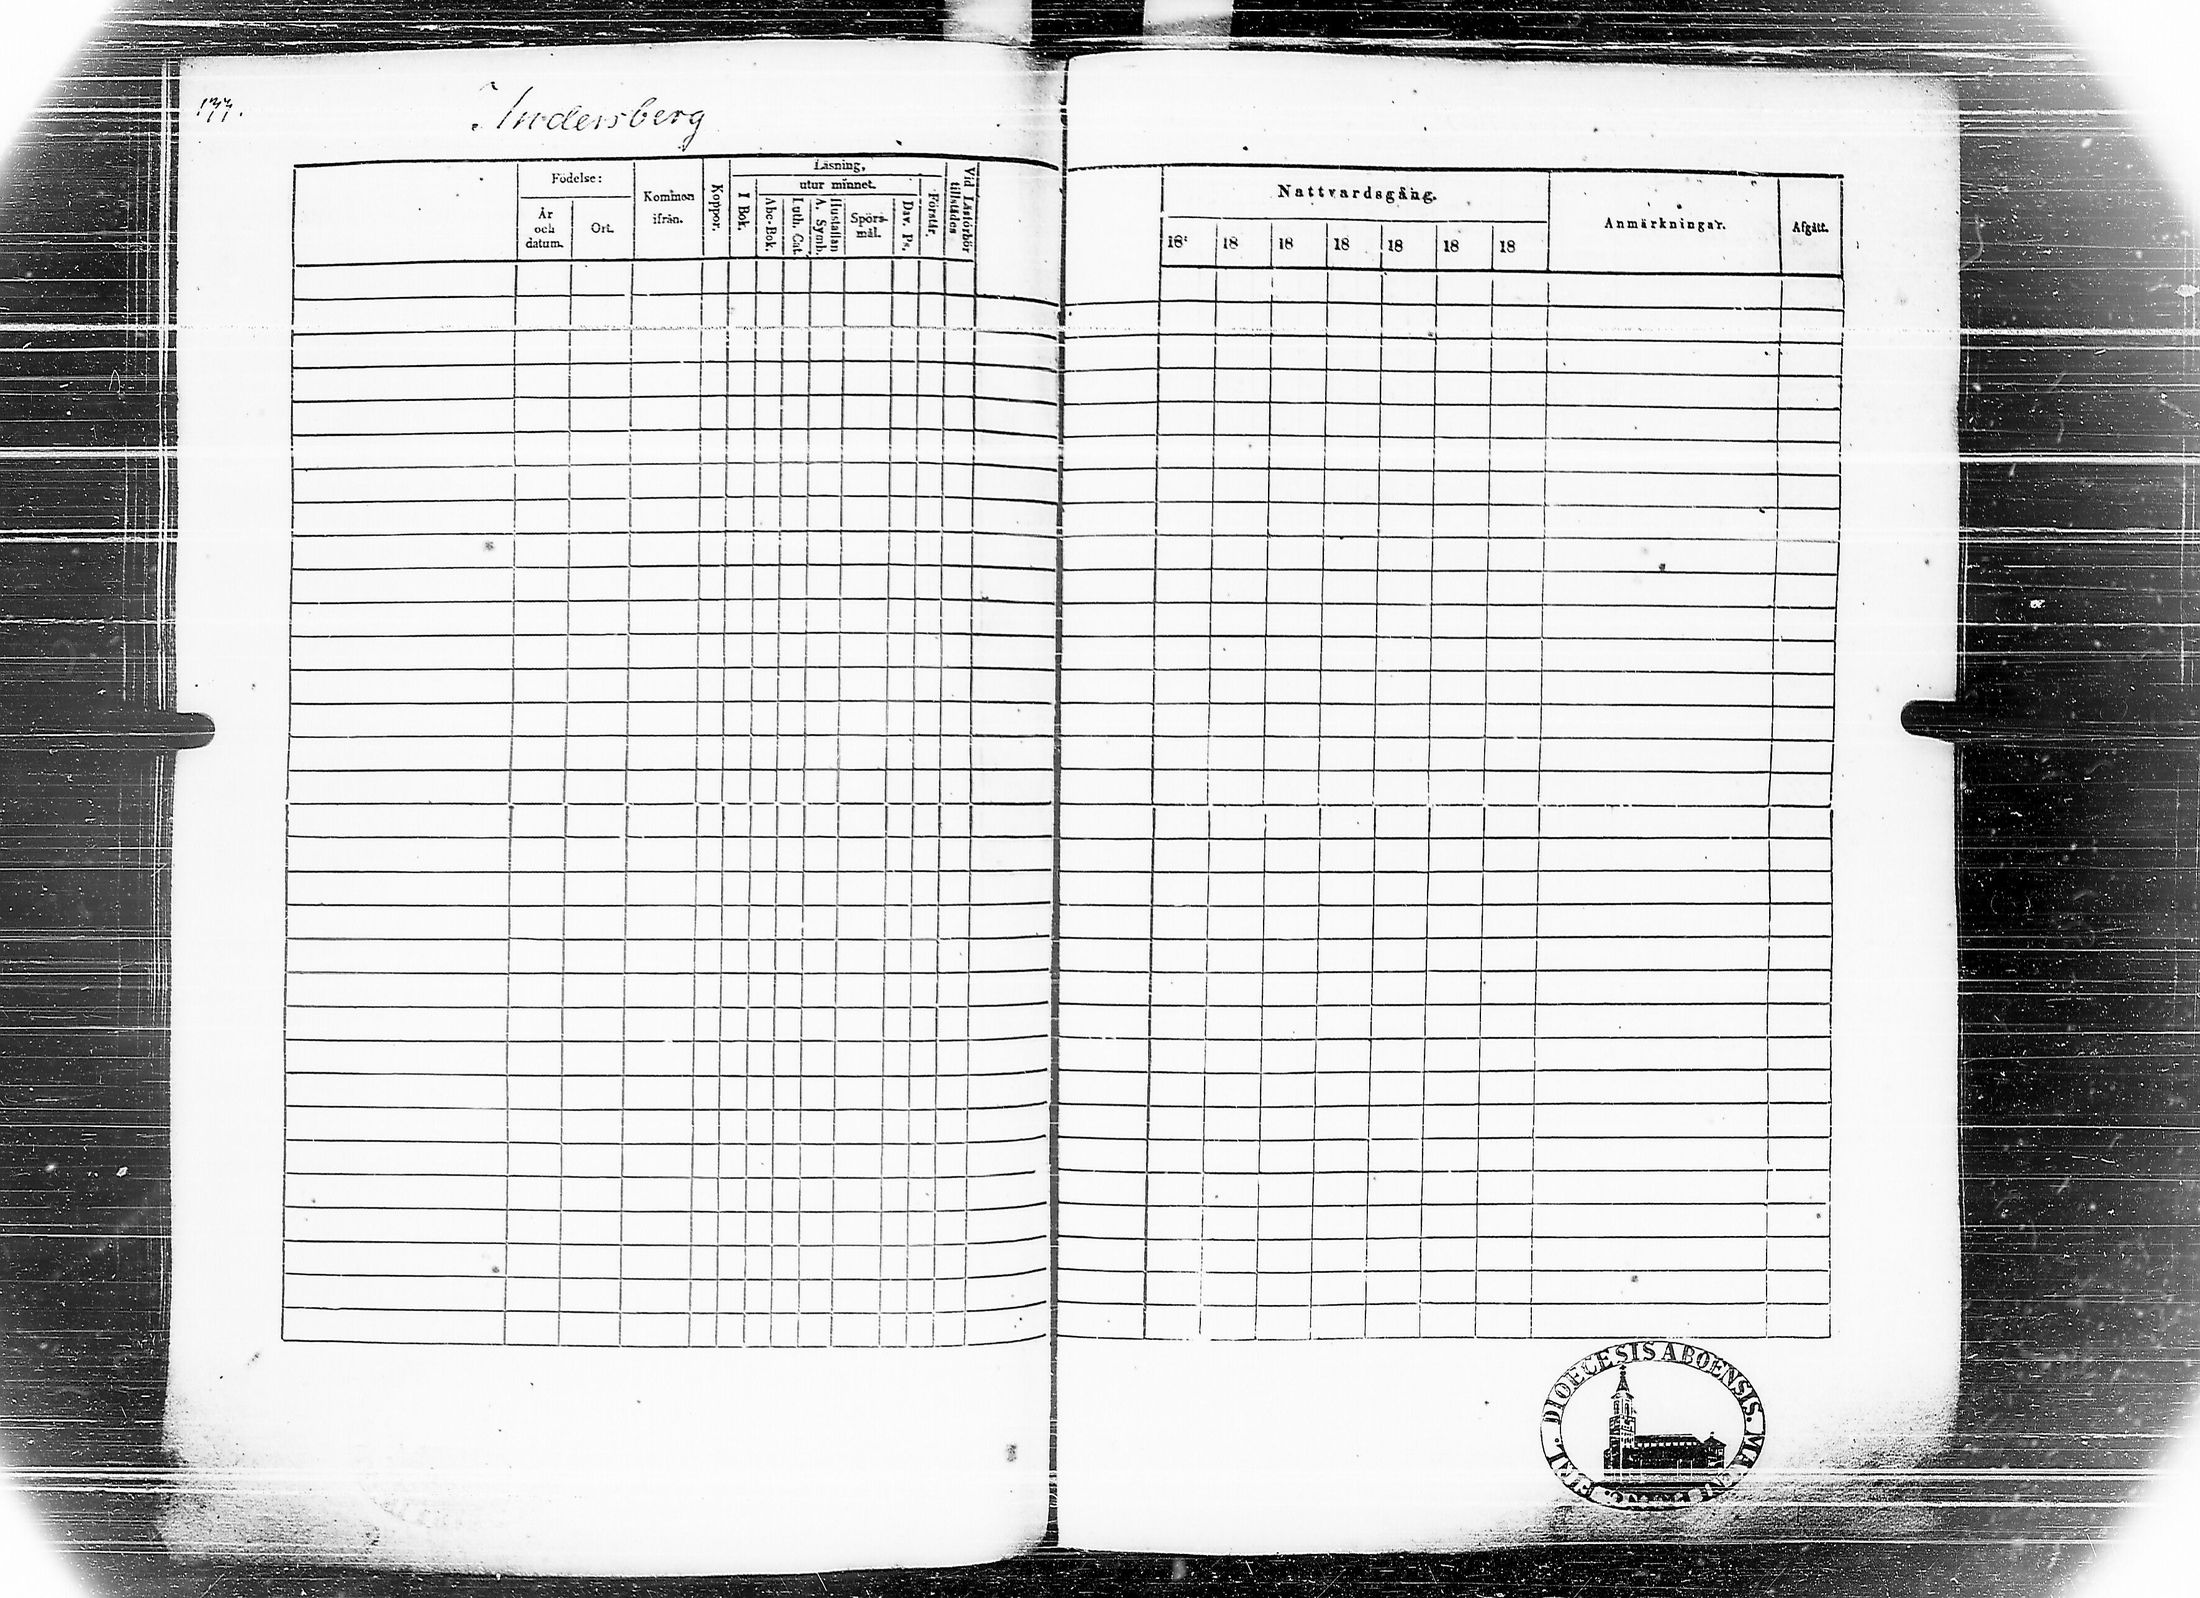 177.
Andersberg
Födelse:
År och datum.
Ort.
Kommon ifrån.
Koppor.
Läsning,
I Bok.
utur minnet.
Abc-Bok.
Luth. Cat.
Hustaflan A. Symb.
Spörsmål.
Dav. Ps.
Förstår.
Vid Läsförhör tillstädes
Nattvardsgång.
18 18 18 18 18 18 18
Anmärkningar.
Afgått.
DIOECESIS ABOENSIS.